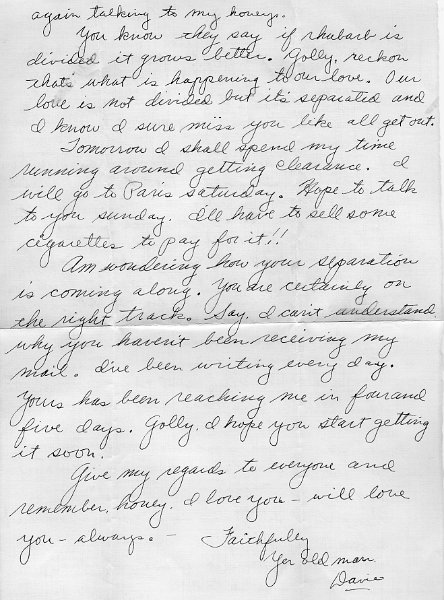 again talking to my honey.
You know they say if rhubarb is
divided it grows better. Golly, reckon
that's what is happening to our love. Our
love is not divided but it's separated and
I know I sure miss you like all get out.
Tomorrow I shall spend my time
running around getting clearance. I
will go to Paris Saturday. Hope to talk
to you Sunday. I'll have to sell some
cigarettes to pay for it!!
Am wondering how your separation
is coming along. You are certainly on
the right track. Say, I can't understand
why you haven't been receiving my
mail. I've been writing every day.
Yours has been reaching me in four and
five days. Golly, I hope you start getting
it soon.
Give my regards to everyone and
remember, honey, I love you - will love
you - always. - Faithfully
Yer old man
Dave